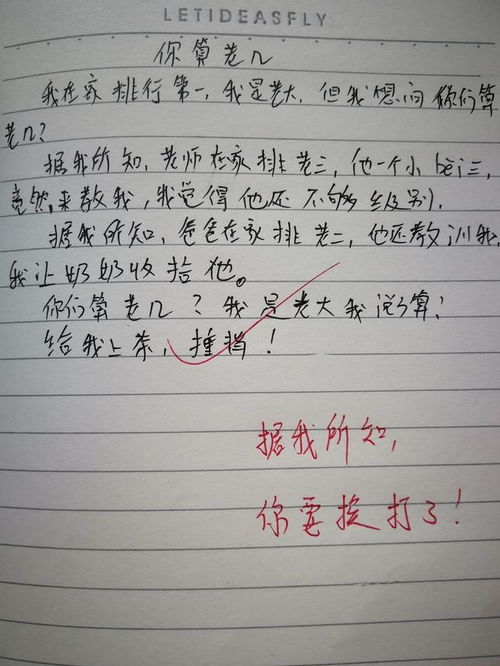 LETIDEASFLY
你算老几
我在家排行第一,我是老大,但我想问你们算
老几?
据我所知,老师在家排老三,他一个小bēi三,
竟然来教我,我觉得他还不够级别.
据我所知,爸爸在家排老二,他还教训我,
我让奶奶收拾他。
你们算老几?我是老大我说了算!
给我上茶,捶背!
据我所知,
你要挨打了!